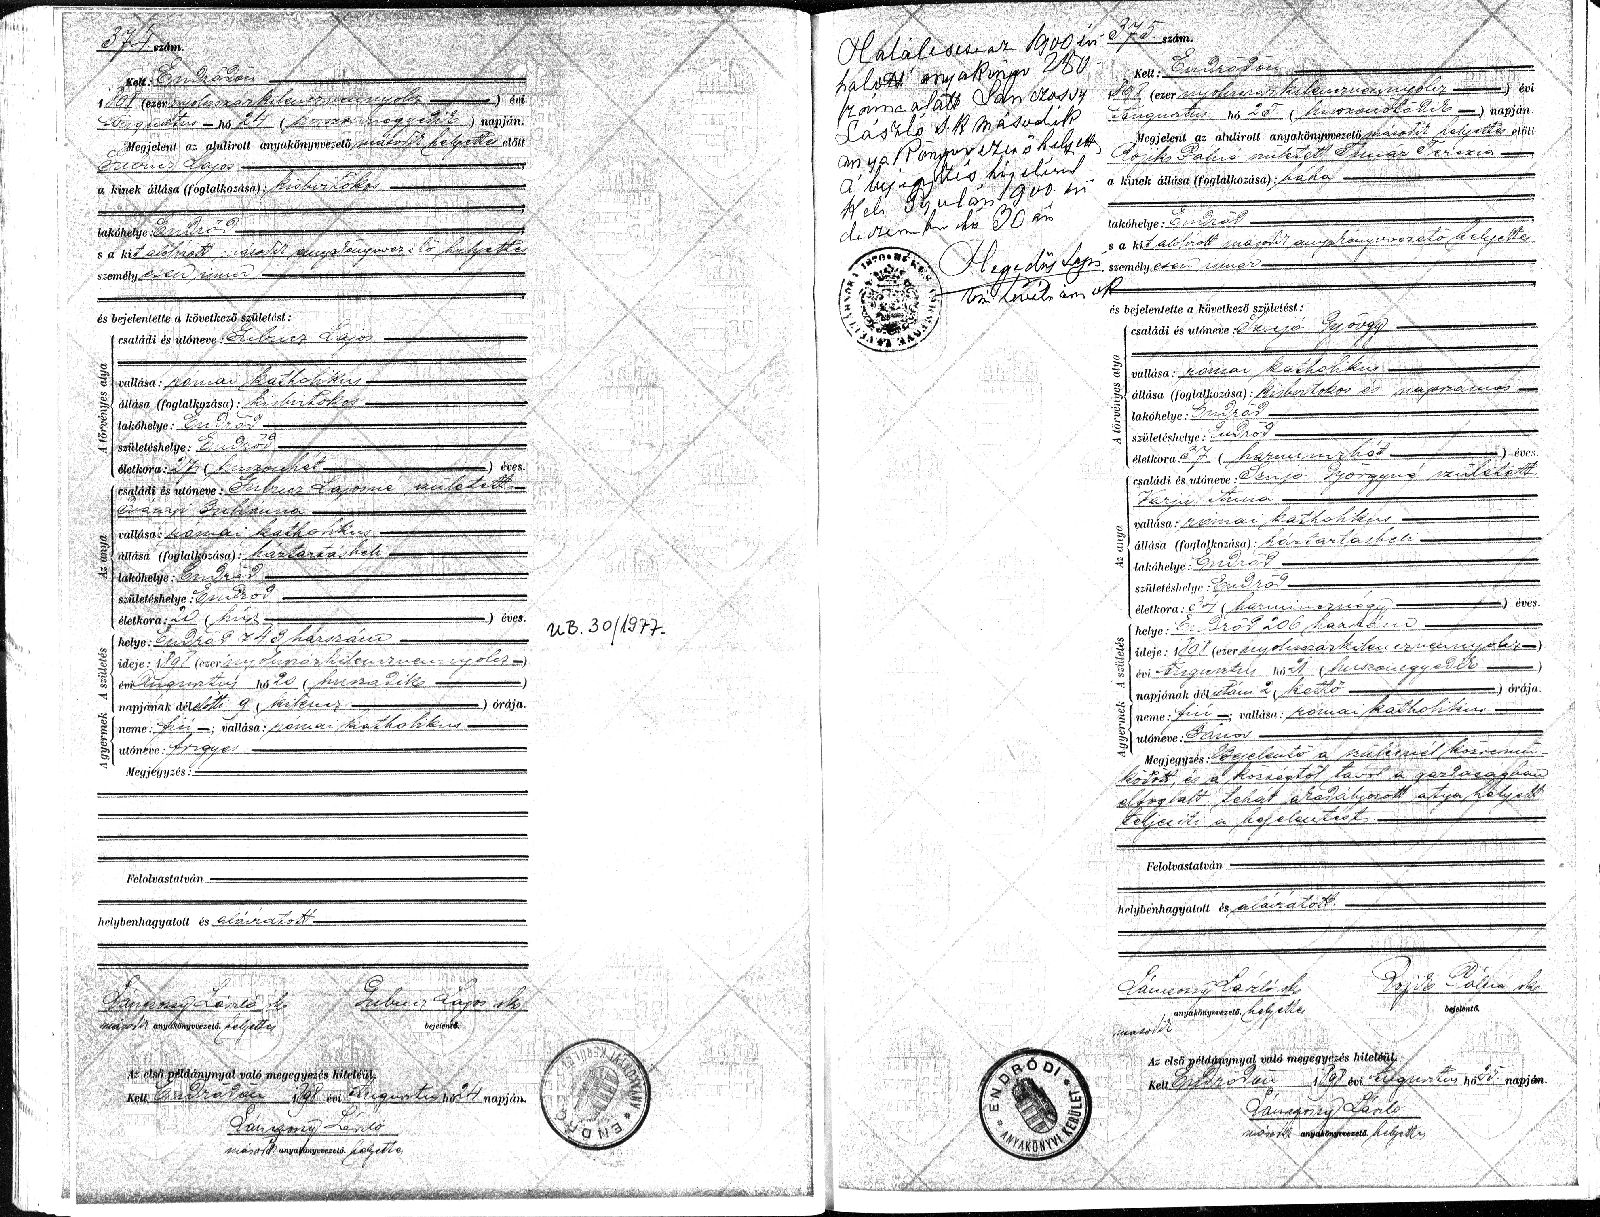 374 szám.
Kelt: Endrődön
1898 (ezernyolcszázkilenczvennyolcz) évi
Augusztus hó 24 (huszonnegyedik) napján.
Megjelent az alulirott anyakönyvvezető második helyettes előtt
Lajos
a kinek állása (foglalkozása): kisbirtokos
lakóhelye: Endrőd
s a kit alólirott második anyakönyvvezető helyettes
személyesen ismer
és bejelentette a következő születést:
A törvényes atya
családi és utóneve: Lajos
vallása: római katholikus
állása (foglalkozása): kisbirtokos
lakóhelye: Endrőd
születéshelye: Endrőd
életkora: 27 (huszonhét) éves.
Az anya
családi és utóneve: Lajosné született
vallása: római katholikus
állása (foglalkozása): háztartásbeli
lakóhelye: Endrőd
születéshelye: Endrőd
életkora: 20 (húsz) éves.
A születés
helye: Endrőd 743 házszám
ideje: 1898 (ezernyolcszázkilenczvennyolcz)
évi Augusztus hó 20 (huszadik)
napjának délelőtti 9 (kilencz) órája.
A gyermek
neme: fiú; vallása: római katholikus
utóneve: Frigyes
Megjegyzés:
Felolvastatván
helybenhagyatott és aláiratott
Lánczosy László sk Lajos sk
második anyakönyvvezető. helyettes bejelentő.
Az első példánynyal való megegyezés hiteléül.
Kelt Endrődön 1898 évi Augusztus hó 24 napján.
Lánczosy László
második anyakönyvvezető. helyettes
UB. 30/1977.
Halálesete az 1900 évi
halotti anyakönyv 280
szám alatt Lánczossy
László s.k. második
anyakönyvvezető helyett.
A bejegyzés hiteléül
Kelt Gyulán 1900 évi
dezember hó 30 án
Hegedűs Lajos
vm. levéltárnok
375 szám.
Kelt: Endrődön
1898 (ezernyolcszázkilenczvennyolcz) évi
Augusztus hó 25 (huszonötödik) napján.
Megjelent az alulirott anyakönyvvezető második helyettes előtt
Pálné született Terézia
a kinek állása (foglalkozása): bába
lakóhelye: Endrőd
s a kit alólirott második anyakönyvvezető helyettes
személyesen ismer
és bejelentette a következő születést:
A törvényes atya
családi és utóneve: György
vallása: római katholikus
állása (foglalkozása): kisbirtokos és napszámos
lakóhelye: Endrőd
születéshelye: Endrőd
életkora: 37 (harminczhét) éves.
Az anya
családi és utóneve: Györgyné született
Varjú Anna
vallása: római katholikus
állása (foglalkozása): háztartásbeli
lakóhelye: Endrőd
születéshelye: Endrőd
életkora: 34 (harmincznégy) éves.
A születés
helye: Endrőd 206 házszám
ideje: 1898 (ezernyolcszázkilenczvennyolcz)
évi Augusztus hó 21 (huszonegyedik)
napjának délutáni 2 (kettő) órája.
A gyermek
neme: fiú; vallása: római katholikus
utóneve: János
Megjegyzés: Bejelentő a szülésnél közremü-
ködött, és a községtől távol a gazdaságban
elfoglalt, tehát akadályozott atya helyett
teljesíti a bejelentést.
Felolvastatván
helybenhagyatott és aláiratott.
Lánczosy László sk Pálné sk
anyakönyvvezető. helyettes bejelentő.
második
Az első példánynyal való megegyezés hiteléül.
Kelt Endrődön 1898 évi Augusztus hó 25 napján.
Lánczosy László
második anyakönyvvezető. helyettes
ENDRŐDI
ANYAKÖNYVI KERÜLET